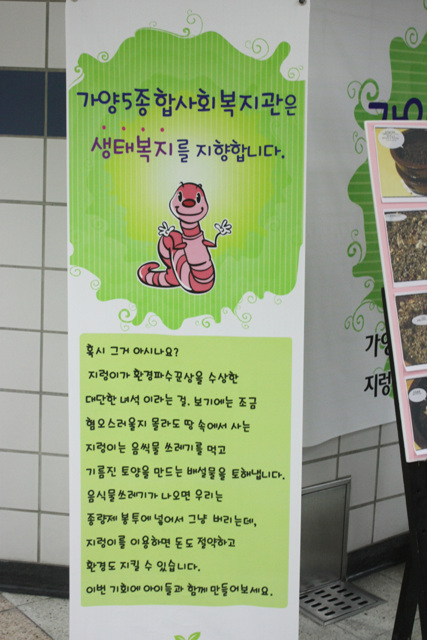 가양5종합사회복지관은
생태복지를 지향합니다.
혹시 그거 아시나요?
지렁이가 환경파수꾼상을 수상한
대단한 녀석 이라는 걸. 보기에는 조금
혐오스러울지 몰라도 땅 속에서 사는
지렁이는 음씩물 쓰레기를 먹고
기름진 토양을 만드는 배설물을 토해냅니다.
음식물쓰레기가 나오면 우리는
종량제 봉투에 넣어서 그냥 버리는데,
지렁이를 이용하면 돈도 절약하고
환경도 지킬 수 있습니다.
이번 기회에 아이들과 함께 만들어보세요.
가양
가양
지렁